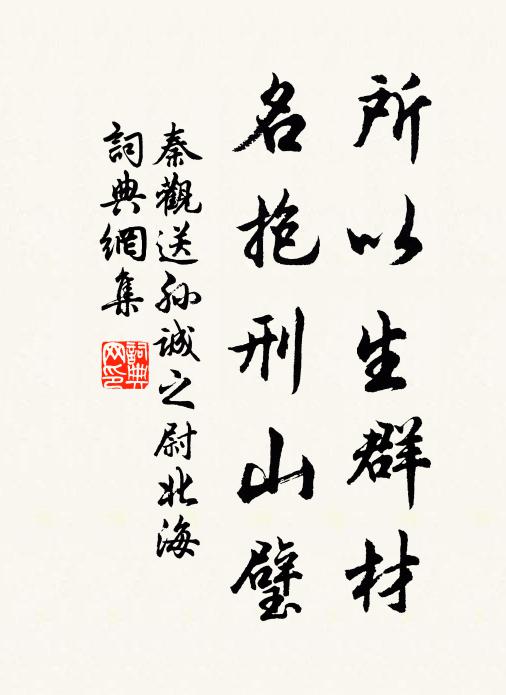 所以生群材
名抱刑山璧
秦觀送孫誠之尉北海
詞典網集
詞典网印